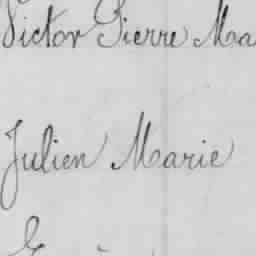 Victor Pierre Ma
Julien Marie